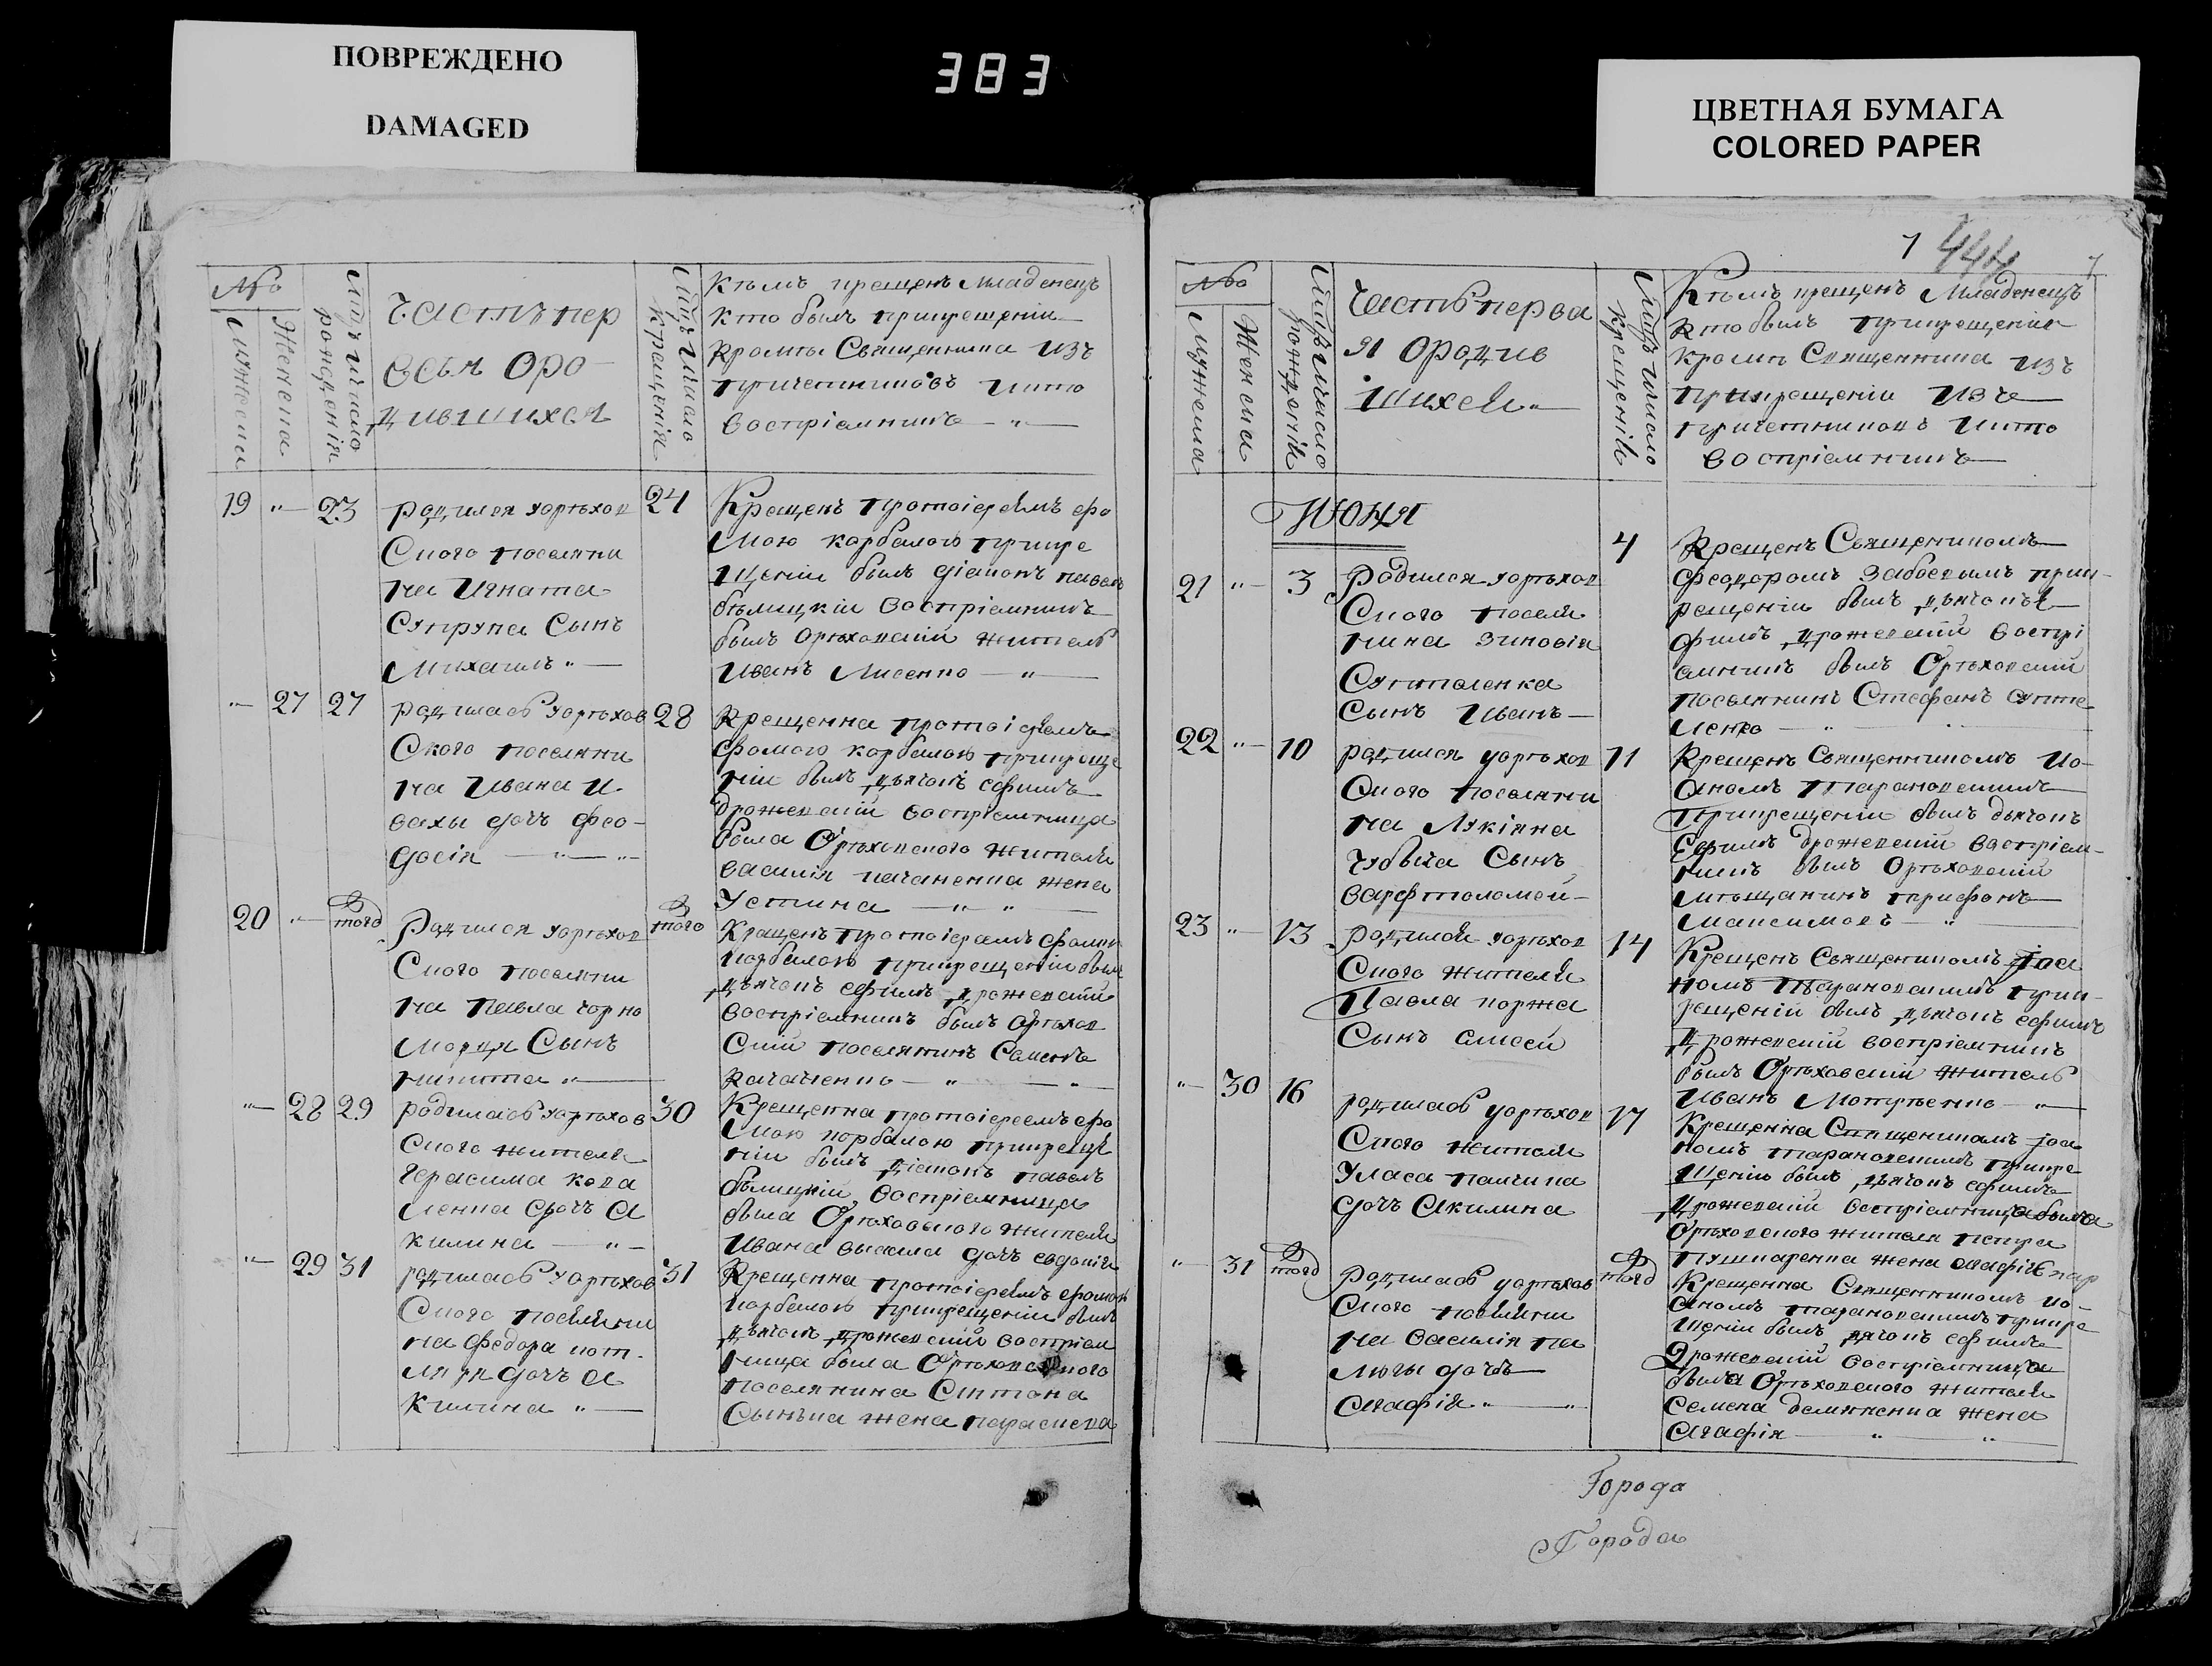 ПОВРЕЖДЕНО
DAMAGED
383
ЦВЕТНАЯ БУМАГА
COLORED PAPER
№
Мужеска
Женска
Мцъ ичисло
рождения
Частъ пер
вая оро
дившихся
Мцъ ичисло
крещенія
Кѣмъ крещенъ Младенецъ
кто былъ прикрещеніи
кромѣ Священника изъ
причетниковъ икто
воспріемникъ
19 " 23
родился уорѣхов
Ского поселяни
на Игната
Супруна Сынъ
Михаилъ "
24
Крещенъ Протоіереемъ Фо
мою корбалою прикре
щеніи былъ діаконъ павелъ
бѣлицкій воспріемникъ
былъ Орѣховскій житель
Иванъ Лисенко "
" 27 27
родилась уорѣхов
Ского поселяни
на Ивана И
вахы дочъ Фео
досія
28
Крещенна протоіереемъ
Фомою корбалою прикреще
ніи былъ дьячокъ ефимъ
дрожевскій воспріемница
была Орѣховского жителя
василія жена
Устина
20 " того
Родился уорѣхов
Ского поселяни
на Павла чорно
Сынъ
никита "
того
Крещенъ Протоіереемъ Фомою
корбалою прикрещеніи былъ
дьячокъ ефимъ дрожевскій
воспріемникъ былъ Орѣхов
Скій поселянинъ Семенъ
" 28 29
родилась уорѣхов
Ского жителя
Герасима кова
ленка дочъ а
килина "
30
Крещенна протоіереемъ Фо
мою корбалою прикреще
ніи былъ діаконъ павелъ
бѣлицкій воспріемница
была Орѣховского жителя
Ивана дочъ евдокія
" 29 31
родилась уорѣхов
Ского поселяни
на Федора кот
ляра дочъ а
килина "
31
Крещенна протоіереемъ Фомою
корбалою прикрещеніи былъ
дьячокъ дрожевскій воспріем
ница была Орѣховского
поселянина Антона
жена параскева
1 444
№
Мужеска
Женска
Мцъ ичисло
рожденія
Часть перва
я ородив
шихся
Мцъ ичисло
крещенія
Кѣмъ крещенъ Младенецъ
кто былъ прикрещеніи
кромѣ Священника изъ
прикрещеніи изъ
причетниковъ икто
воспріемникъ
Июня
21 " 3
Родился уорѣхов
Ского поселя
нина зиновія
Сынъ Иванъ
4
Крещенъ Священникомъ
Феодоромъ прик
рещеніи былъ дьячокъ Е
фимъ дрожевскій воспрі
емникъ былъ Орѣховскій
поселянинъ Стефанъ
22 " 10
родился уорѣхов
Ского поселяни
на Лукіяна
Сынъ
варфоломей
11
Крещенъ Священникомъ Ио
аномъ Тарановскимъ
Прикрещении былъ дьячокъ
Ефимъ дрожевскій воспріем
никъ былъ Орѣховскій
мѣщанинъ трифонъ
Максимовъ
23 " 13
родился уорѣхов
Ского жителя
Павла коржа
Сынъ
14
Крещенъ Священникомъ Іоа
номъ Тарановскимъ прик
рещеній былъ дьячокъ ефимъ
дрожевскій воспріемникъ
былъ Орѣховскій житель
Иванъ
" 30 16
родилась уорѣхов
Ского жителя
Уласа
дочъ Акилина
17
Крещенна Священникомъ Іоа
номъ тарановскимъ прикре
щеніи былъ дьячокъ ефимъ
дрожевскій воспріемница была
Орѣховского жителя петра
Пушкаренка жена
" 31 того
родилась уорѣхов
Ского поселяни
на василія па
люгы дочъ
Агафія "
того
Крещенна Священникомъ Ио
аномъ тарановскимъ прикре
щеніи былъ дячокъ ефимъ
Дрожевскій воспріемница
была Орѣховского жителя
Семена демяненка жена
Агафія
Города
Города